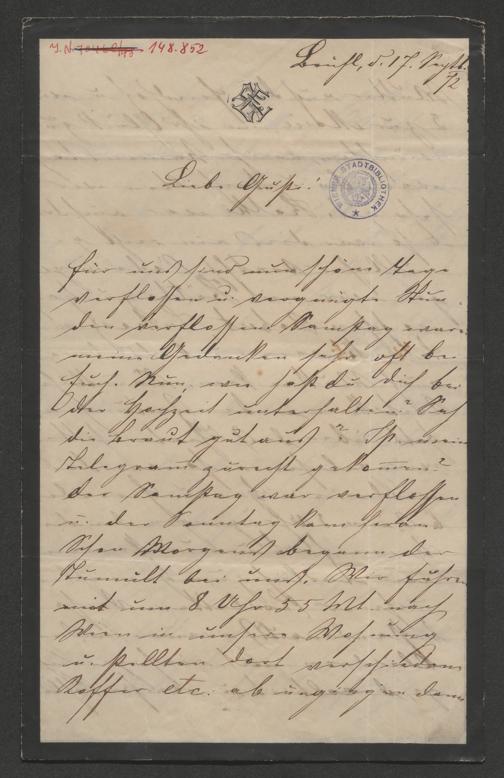 J.N. 148.852
Brühl, d. 17. Sept.
72
WIENER STADTBIBLIOTHEK
Liebe Gusti!
Für uns sind nun schöne Tage
verflossen u. vergnügte Stun
den verflossen. Samstag waren
meine Gedanken sehr oft bei
Euch. Nun, wie hast du dich bei
der Hochzeit unterhalten? Sah
die Braut gut aus? Ist mein
Telegram zurecht gekommen?
Der Samstag war verflossen
u. der Sonntag kam heran
Schon Morgens begann der
Tumult bei uns. Wir fuhren
um 8 Uhr 55 Mt. nach
Wien in unsere Wohnung
u. stellten dort verschiedene
Koffer etc. ab u. gingen dann